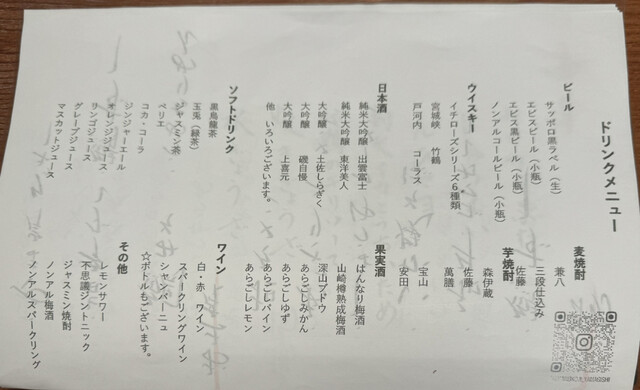 ドリンクメニュー
ビール
サッポロ黒ラベル（生）
ヱビスビール（小瓶）
エビス黒ビール（小瓶）
ノンアルコールビール（小瓶）
ウイスキー
イチローズシリーズ6種類
宮城峡　竹鶴
戸河内　コーラス
日本酒
純米大吟醸　出雲富士
純米大吟醸　東洋美人
大吟醸　土佐しらぎく
大吟醸　磯自慢
大吟醸　上喜元
他　いろいろございます。
ソフトドリンク
黒烏龍茶
玉兎（緑茶）
ジャスミン茶
ペリエ
コカ・コーラ
ジンジャーエール
オレンジジュース
リンゴジュース
グレープジュース
マスカットジュース
麦焼酎
兼八
三段仕込み
佐藤
芋焼酎
森伊蔵
佐藤
萬膳
宝山
安田
果実酒
はんなり梅酒
山崎樽熟成梅酒
深山ブドウ
あらごしみかん
あらごしゆず
あらごしパイン
あらごしレモン
ワイン
白・赤　ワイン
スパークリングワイン
シャンパーニュ
☆ボトルもございます。
その他
レモンサワー
不思議ジントニック
ジャスミン焼酎
ノンアル梅酒
ノンアルスパークリング